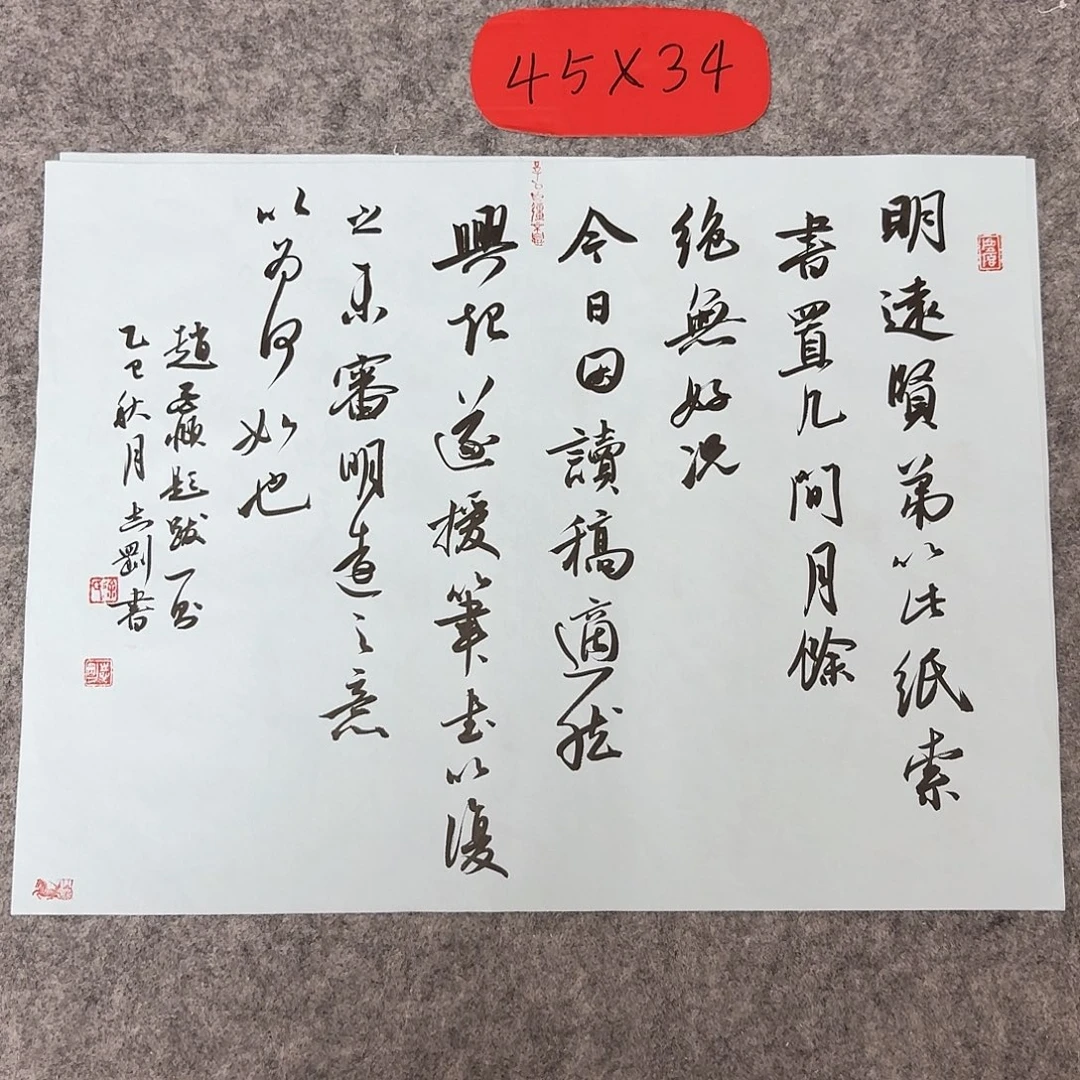 45X34
明遠賢弟以此紙索
書置几間月餘
絶無好况
今日因讀稿適然
興起遂援筆書以復
之未審明遠之意
以為何如也
趙孟頫題跋一則
乙巳秋月志剛書